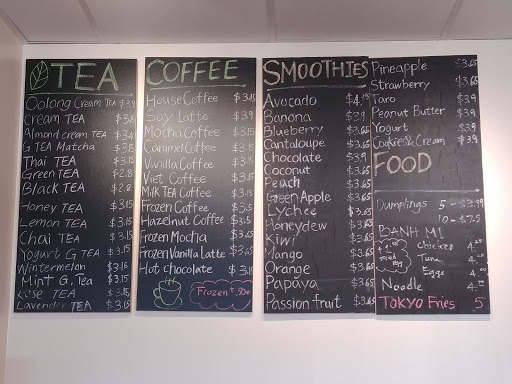 TEA
Oolong Cream TEA $3.9
Cream TEA
Almond cream TEA $3.4
G TEA Matcha $3.15
Thai TEA $3.15
Green TEA $2.8
Black TEA $2.8
Honey TEA $3.15
Lemon TEA $3.15
Chai TEA $3.15
Yogurt G TEA $3.15
Wintermelon $3.15
Mint G. Tea $3.15
Rose TEA $3.15
Lavender TEA $3.15
COFFEE
House Coffee $3.15
Soy Latte $3.9
Mocha Coffee $3.15
Caramel Coffee $3.15
Vanilla Coffee $3.15
Viet Coffee $3.15
Milk TEA Coffee $3.15
Frozen Coffee $3.5
Hazelnut Coffee $3.5
Frozen Mocha $3.65
Frozen Vanilla Latte $3.65
Hot chocolate $3.15
Frozen + .50
SMOOTHIES
Avocado $4.15
Banana
Blueberry $3.65
Cantaloupe $3.65
Chocolate $3.9
Coconut $3.65
Peach $3.65
Green Apple $3.65
Lychee $3.65
Honeydew $3.65
Kiwi $3.65
Mango $3.65
Orange $3.65
Papaya $3.65
Passion fruit $3.65
Pineapple $3.65
Strawberry $3.65
Taro $3.9
Peanut Butter $3.9
Yogurt $3.9
Cookies & Cream $3.9
FOOD
Dumplings 5 - $3.99
10 - $7.5
BANH MI
Chicken
Tuna
Eggs
Noodle
TOKYO Fries 5